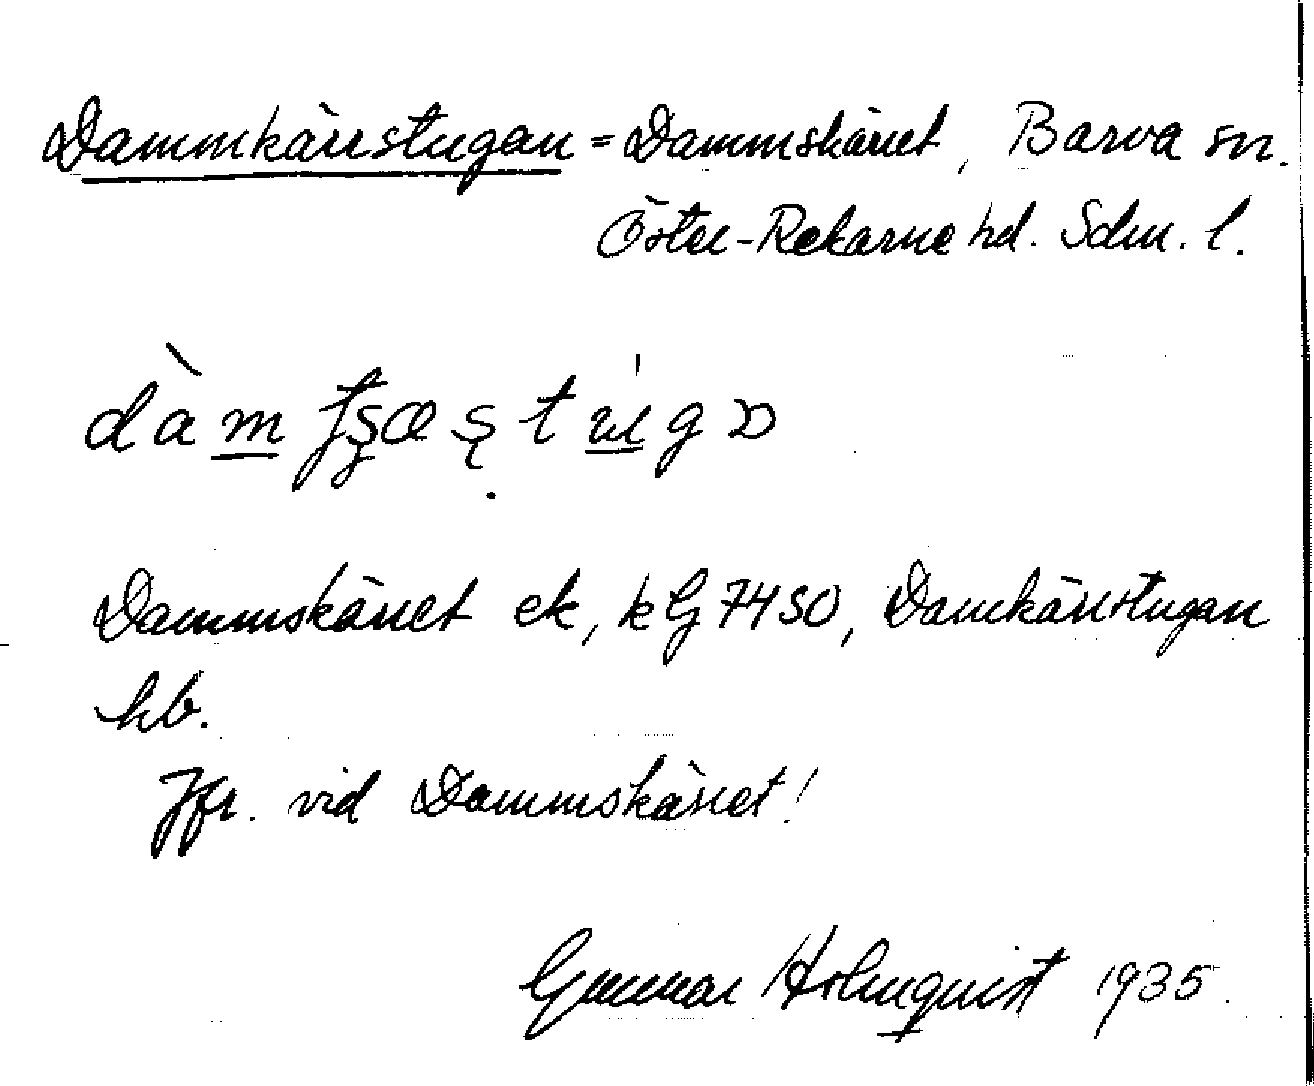 Dammkärrstugan = Dammskärret, Barva sn.
Öster-Rekarne hd. Sdm. l.
Dammskärret ek, kG 7450, Damkärrstugan
hb.
Jfr. vid Dammskärret!
Gunnar Holmquist 1935.